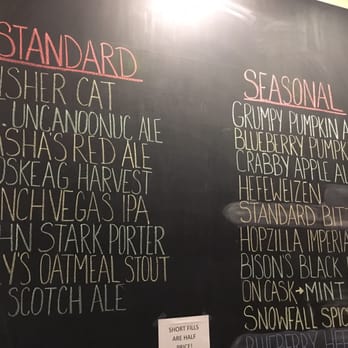 STANDARD
ISHER CAT
. UNCANOONUC ALE
ASHA'S RED ALE
OSKEAG HARVEST
NCHVEGAS IPA
HN STARK PORTER
Y'S OATMEAL STOUT
SCOTCH ALE
SHORT FILLS
ARE HALF
PRICE!
SEASONAL
GRUMPY PUMPKIN A
BLUEBERRY PUMPK
CRABBY APPLE AL
HEFEWEIZEN
STANDARD BIT
HOPZILLA IMPERIA
BISON'S BLACK
ON CASK→MINT
SNOWFALL SPIC
BLUEBERRY HEF